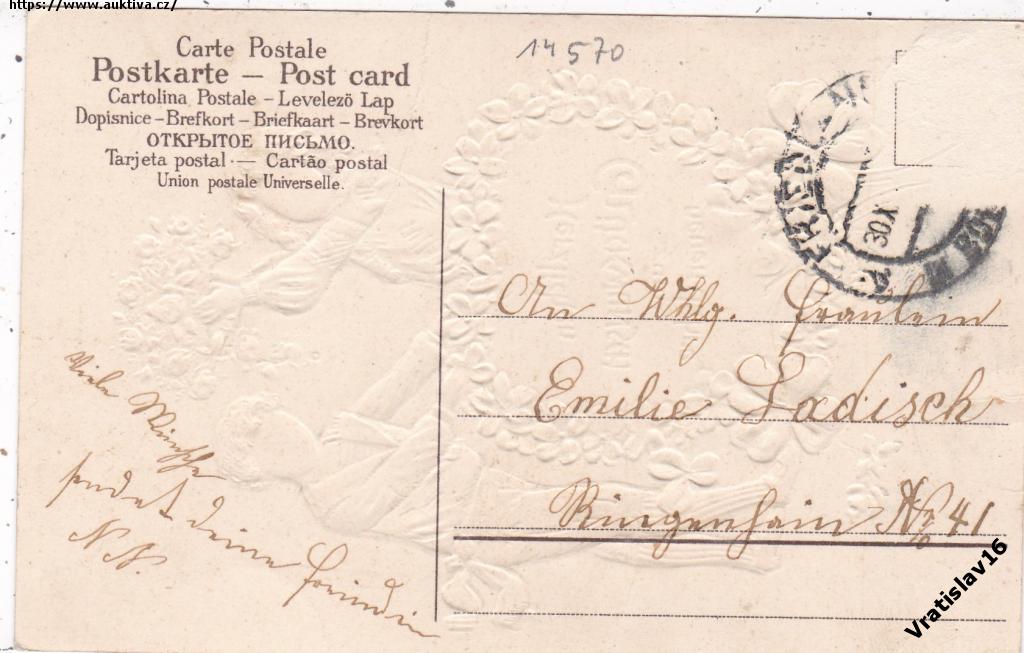 https://www.auktiva.cz/
14570
Carte Postale
Postkarte — Post card
Cartolina Postale – Levelező Lap
Dopisnice – Brefkort – Briefkaart – Brevkort
ОТКРЫТОЕ ПИСЬМО.
Tarjeta postal — Cartão postal
Union postale Universelle.
FRIED
30 X
An Whlg. Fräulein
Emilie Ladisch
Ringenhain No 41
Viele Wünsche
sendet deine Freundin
N. N.
Vratislav16